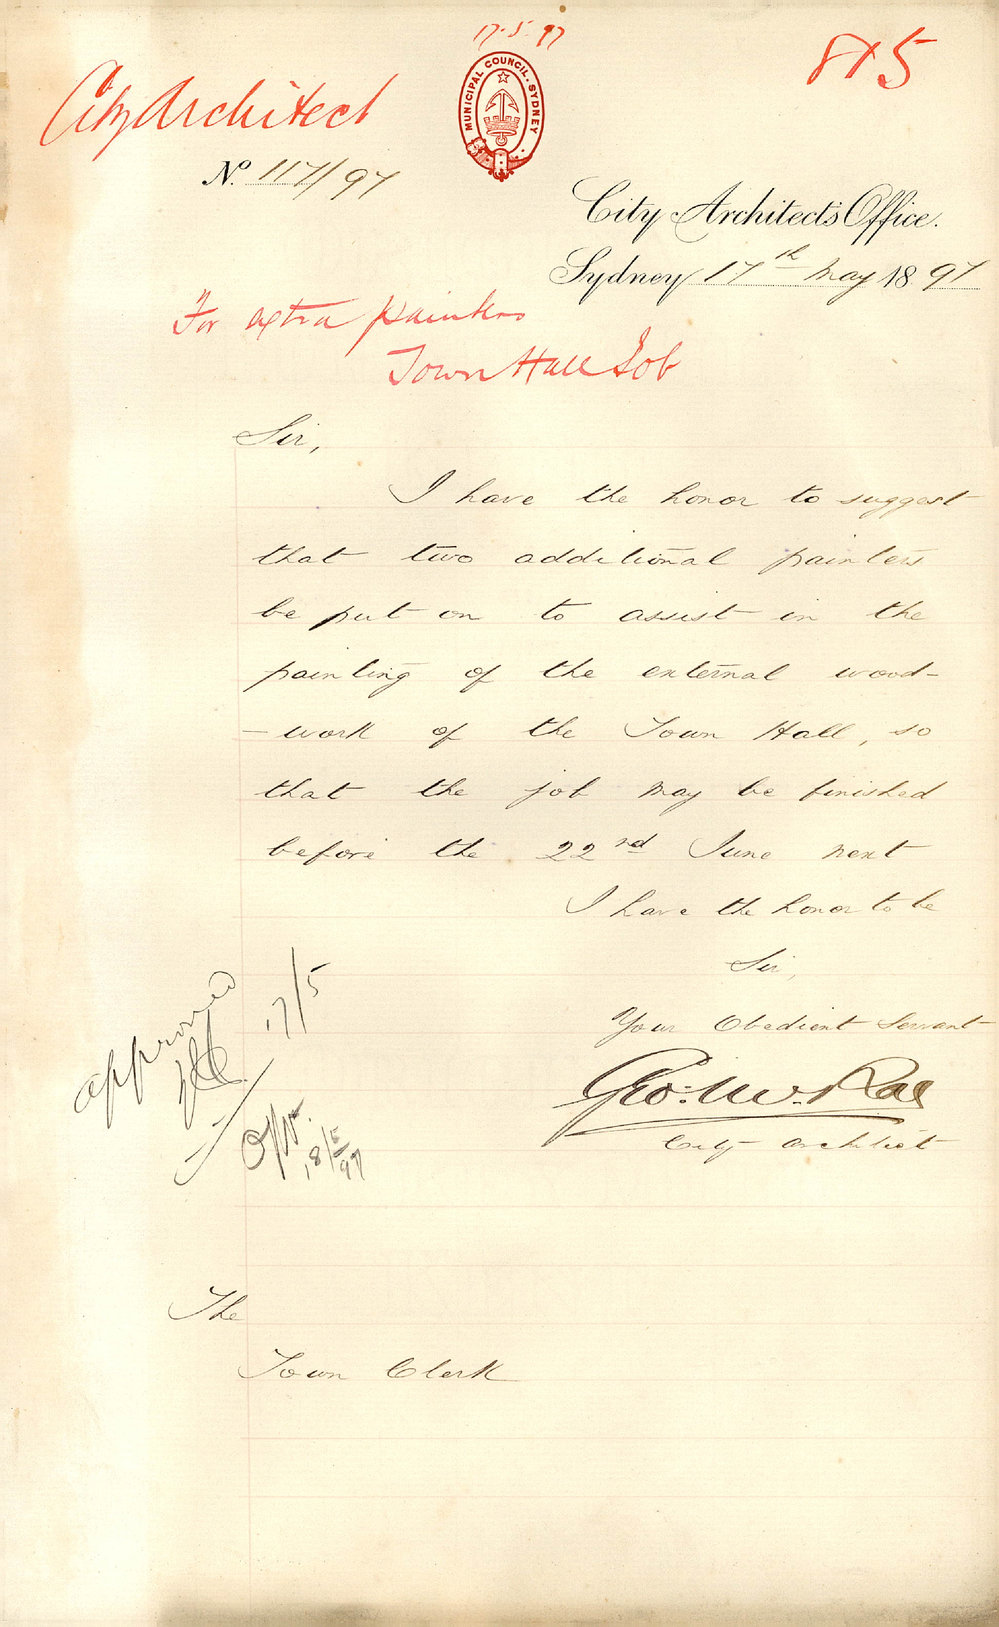 17.5.97
815
City Architect
MUNICIPAL COUNCIL. SYDNEY
No. 117/97
City Architect's Office.
Sydney 17th May 1897
For extra painters
Town Hall Job
Sir,
I have the honor to suggest
that two additional painters
be put on to assist in the
painting of the external wood-
-work of the Town Hall, so
that the job may be finished
before the 22nd June next
I have the honor to be
Sir,
Your Obedient Servant
Geo: McRae
City Architect
approved
17/5
18/5/97
The
Town Clerk